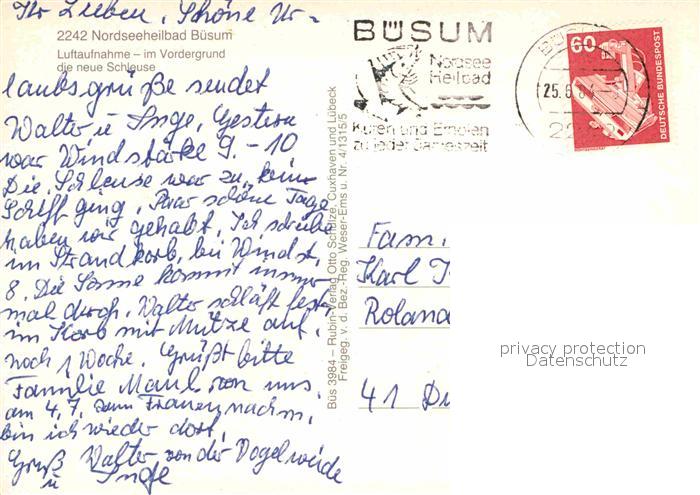 Ihr Lieben, Schöne Ur-
2242 Nordseeheilbad Büsum
Luftaufnahme – im Vordergrund
die neue Schleuse
laubsgrüße sendet
Walter u Inge, Gestern
war Windstärke 9.-10
Die Schleuse war zu, kein
Schiff ging, Paar schöne Tage
haben wir gehabt, Ich schreibe
im Strandkorb, bei Windst.
8. Die Sonne kommt immer
mal durch, Walter schläft fest
im Korb mit Mütze auf,
noch 1 Woche, Grüßt bitte
Familie Maul von uns,
am 4.7. zum Frauennachm.
bin ich wieder dort,
Gruß Walter von der Vogelweide
u Inge
Büs 3984 – Rubin-Verlag Otto Schulze, Cuxhaven und Lübeck
Freigeg. v. d. Bez.-Reg. Weser-Ems u. Nr. 4/1315/5
BÜSUM
Nordsee
Heilbad
Kuren und Erholen
zu jeder Jahreszeit
25.6.
60
DEUTSCHE BUNDESPOST
Fam.
Karl
Roland
41 Du
privacy protection
Datenschutz